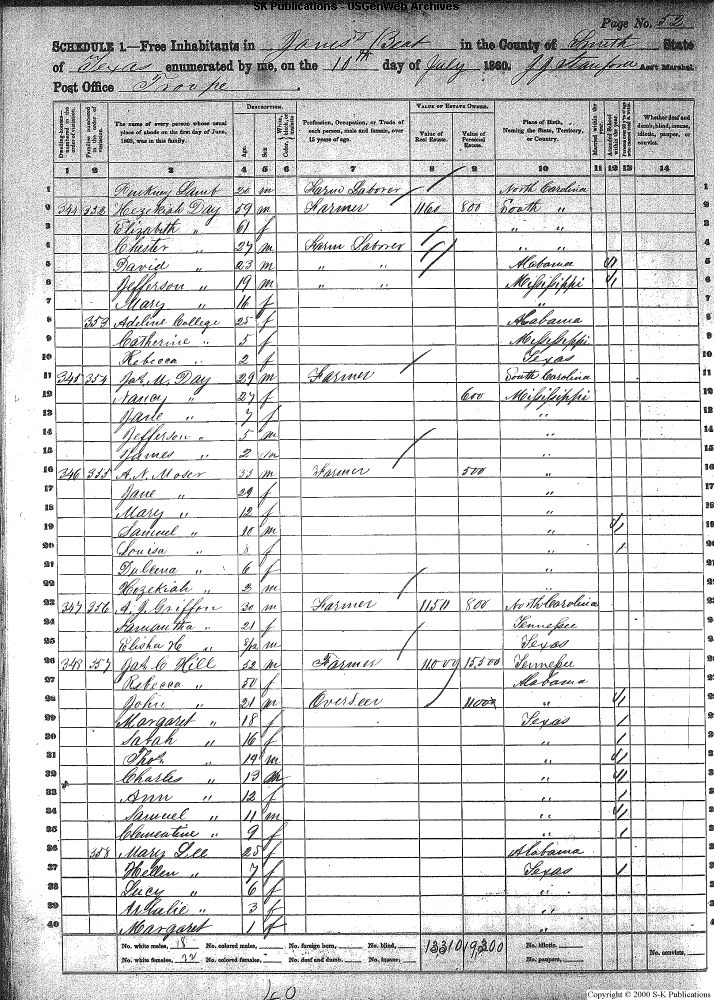 SK Publications - USGenWeb Archives
Page No. 52
SCHEDULE 1.—Free Inhabitants in Jones's Beat in the County of Smith State
of Texas enumerated by me, on the 10th day of July 1860. Ass't Marshal.
Post Office Troupe
DESCRIPTION. VALUE OF ESTATE OWNED.
Dwelling-houses—numbered in the order of visitation. Families numbered in the order of visitation. The name of every person whose usual place of abode on the first day of June, 1860, was in this family. Age. Sex. Color, Profession, Occupation, or Trade of each person, male and female, over 15 years of age. Value of Real Estate. Value of Personal Estate. Place of Birth, Naming the State, Territory, or Country. Married within the Attended School Whether deaf and dumb, blind, insane, idiotic, pauper, or convict.
1 2 3 4 5 6 7 8 9 10 11 12 13 14
1 20 m Farm Laborer North Carolina 1
2 344 352 Hezekiah Day 59 m Farmer 1160 800 South " 2
3 Elizabeth " 61 f " " 3
4 Chester " 27 m Farm Laborer " " 4
5 David " 23 m " " Alabama 1 5
6 Jefferson " 19 m " " Mississippi 1 6
7 Mary " 16 f " 7
8 353 Adeline College 25 f Alabama 8
9 Catherine " 5 f Mississippi 9
10 Rebecca " 2 f Texas 10
11 345 354 Jas. M. Day 29 m Farmer South Carolina 11
12 Nancy " 27 f 600 Mississippi 12
13 Jane " 7 f " 13
14 Jefferson " 5 m " 14
15 James " 2 m " 15
16 346 355 A. N. Moser 35 m Farmer 500 " 16
17 Jane " 29 f " 17
18 Mary " 12 f " 18
19 Samuel " 10 m " 1 19
20 Louisa " 8 f " 1 20
21 Dulcena " 6 f " 21
22 Hezekiah " 2 m " 22
23 347 356 A. J. Griffon 30 m Farmer 1150 800 North Carolina 23
24 Samantha " 21 f Tennessee 24
25 Elisha H " m Texas 25
26 348 357 Jas. C Hill 52 m Farmer 11000 15,500 Tennessee 26
27 Rebecca " 50 f Alabama 27
28 John " 21 m Overseer " 1
29 Margaret " 18 f Texas 1
30 Sarah " 16 f " 1
31 Thos. " 19 m " 1
32 Charles " 13 m " 1
33 Ann " 12 f " 1
34 Samuel " 11 m " 1
35 Clementine " 9 f " 1
36 358 Mary Lee 25 f Alabama
37 Hellen " 7 f Texas 1
38 Lucy " 6 f "
39 " 3 f "
40 Margaret 1 f "
No. white males, 18 No. colored males, No. foreign born, No. blind, 13310 19200 No. idiotic,
No. white females, 22 No. colored females, No. deaf and dumb, No. insane, No. paupers, No. convicts,
40
Copyright © 2000 S-K Publications